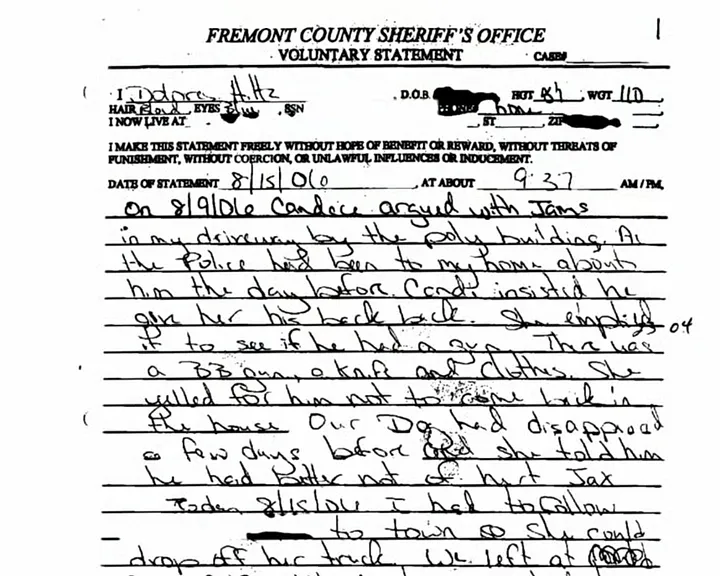 1
FREMONT COUNTY SHERIFF'S OFFICE
VOLUNTARY STATEMENT CASE#
I Dolores Hiltz D.O.B. HGT WGT 110
HAIR Blond EYES Blue SSN PHONE home
I NOW LIVE AT ST ZIP
I MAKE THIS STATEMENT FREELY WITHOUT HOPE OF BENEFIT OR REWARD, WITHOUT THREATS OF
PUNISHMENT, WITHOUT COERCION, OR UNLAWFUL INFLUENCES OR INDUCEMENT.
DATE OF STATEMENT 8/15/06, AT ABOUT 9:37 AM/PM,
On 8/9/06 Candice argued with Jams
in my driveway by the poly building. As
the Police had been to my home about
him the day before. Candi insisted he
give her his back back. She emptyed
it to see if he had a gun. There was
a BB gun, a knife and clothes. She
yelled for him not to come back in
the house Our Dog had disapprod
a few days before and she told him
he had better not of hurt Jax
Today 8/15/06 I had to follow
to town so she could
drop off her truck, We left at